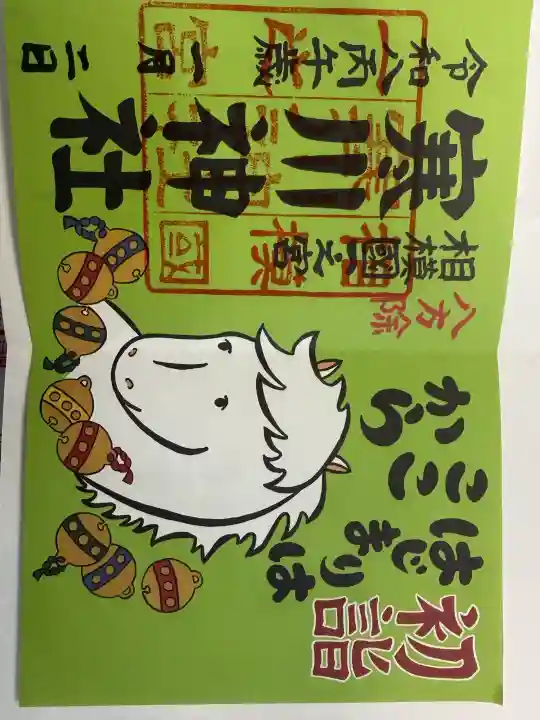 初詣
はじまりは
ここから
八方除
相模國一之宮
寒川神社
令和八丙午歳
一月二日